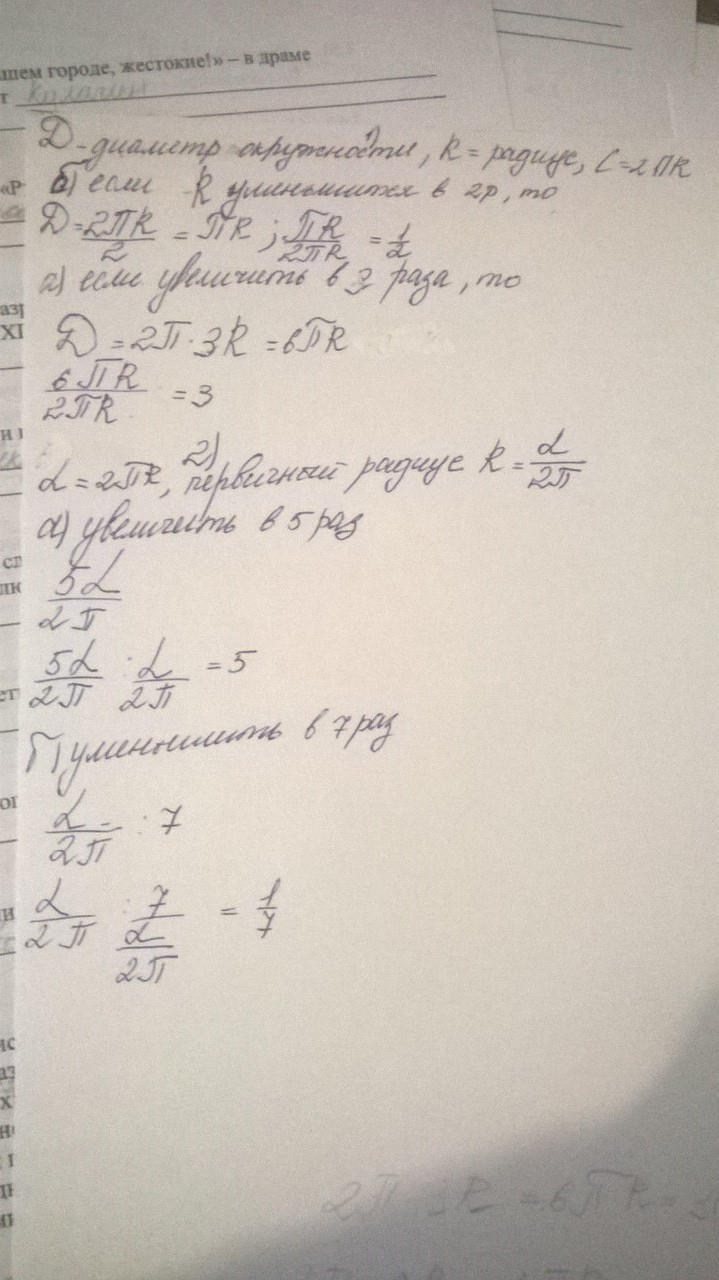 шем городе, жестокие!» – в драме
т
Д - диаметр окружности, R = радиус, C = 2ПR
1)
«Р
б) если R уменьшится в 2р, то
Д = 2ПR/2 = ПR ; ПR/2ПR = 1/2
а) если увеличить в 3 раза, то
азр
XI
Д = 2П · 3R = 6ПR
6ПR/2ПR = 3
и
2)
L = 2ПR, первичный радиус R = L/2П
а) увеличить в 5 раз
сл
5L/2П
5L/2П : L/2П = 5
ет
Б) уменьшить в 7 раз
ог
L/2П : 7
и
L/2П : 7/L/2П = 1/7
ис
аз
х
но
2П 3R = 6ПR =